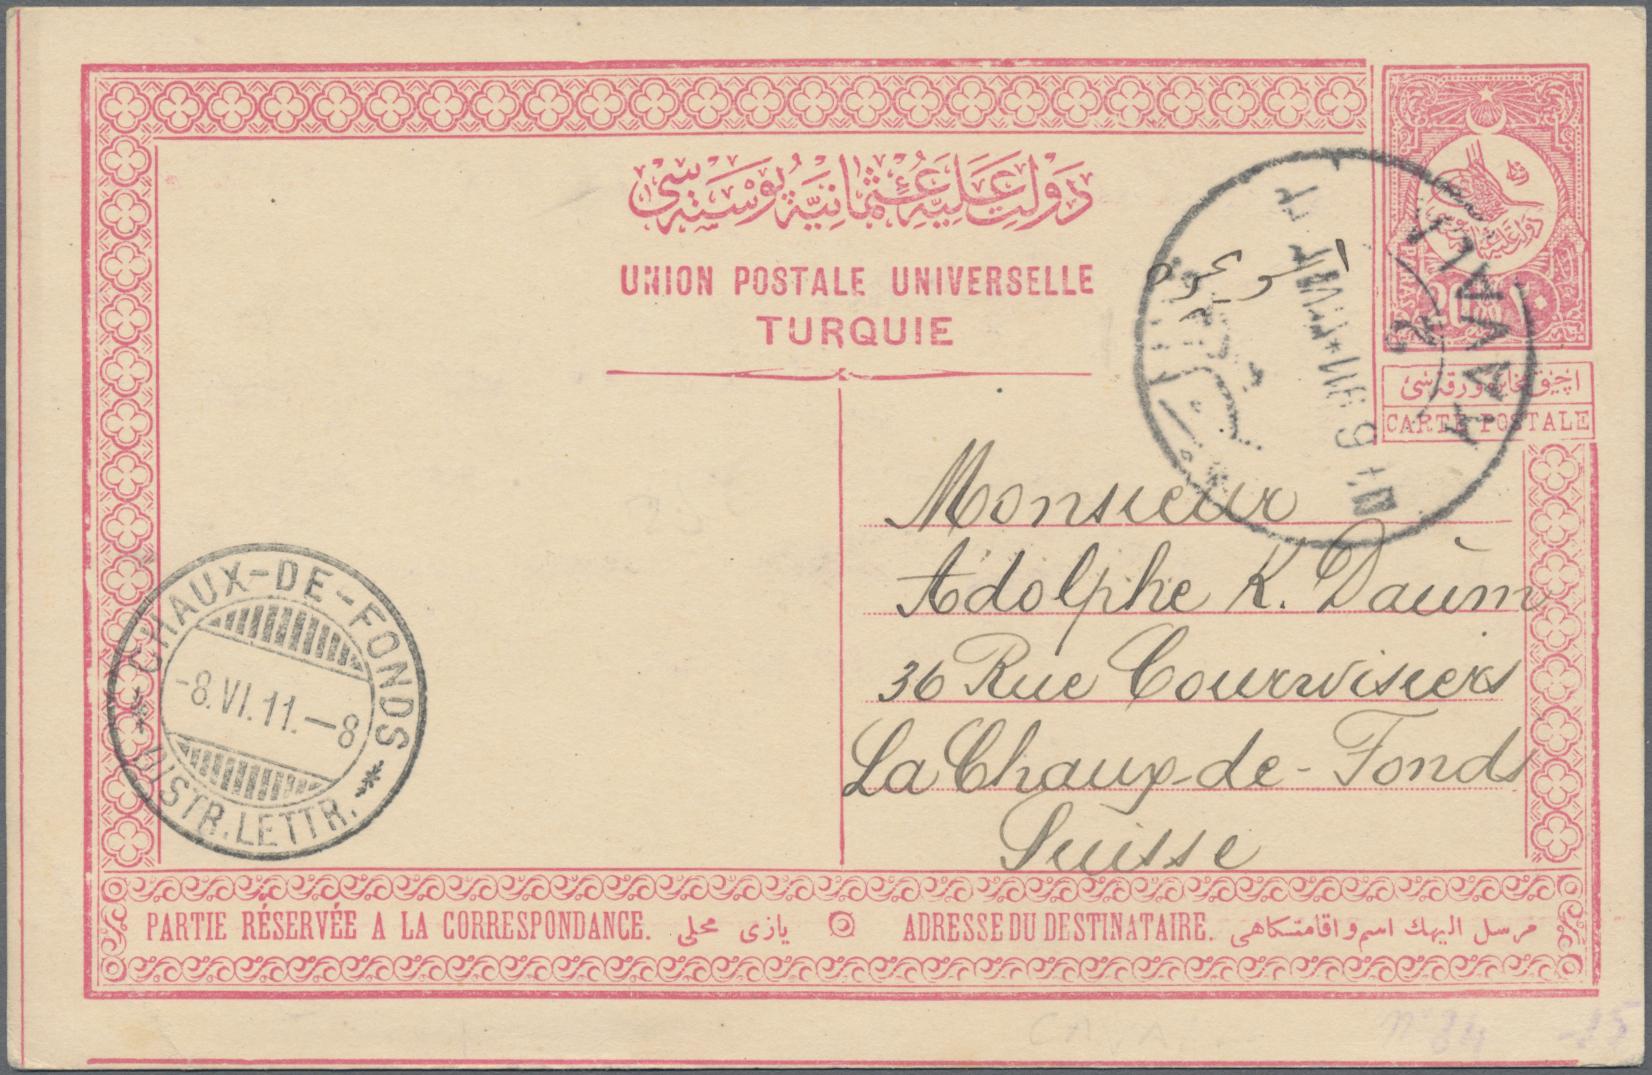 دولت علیه عثمانیه پوسته سی
UNION POSTALE UNIVERSELLE
TURQUIE
CARTE POSTALE
KAVALA
2
Monsieur
Adolphe K. Daum
36 Rue Courvoisiers
La Chaux-de-Fonds
Suisse
CHAUX-DE-FONDS
-8.VI.11.-8
DISTR. LETTR.
PARTIE RÉSERVÉE A LA CORRESPONDANCE. یازی محلی
ADRESSE DU DESTINATAIRE. مرسل الیهك اسم و اقامتكاهی
n°84